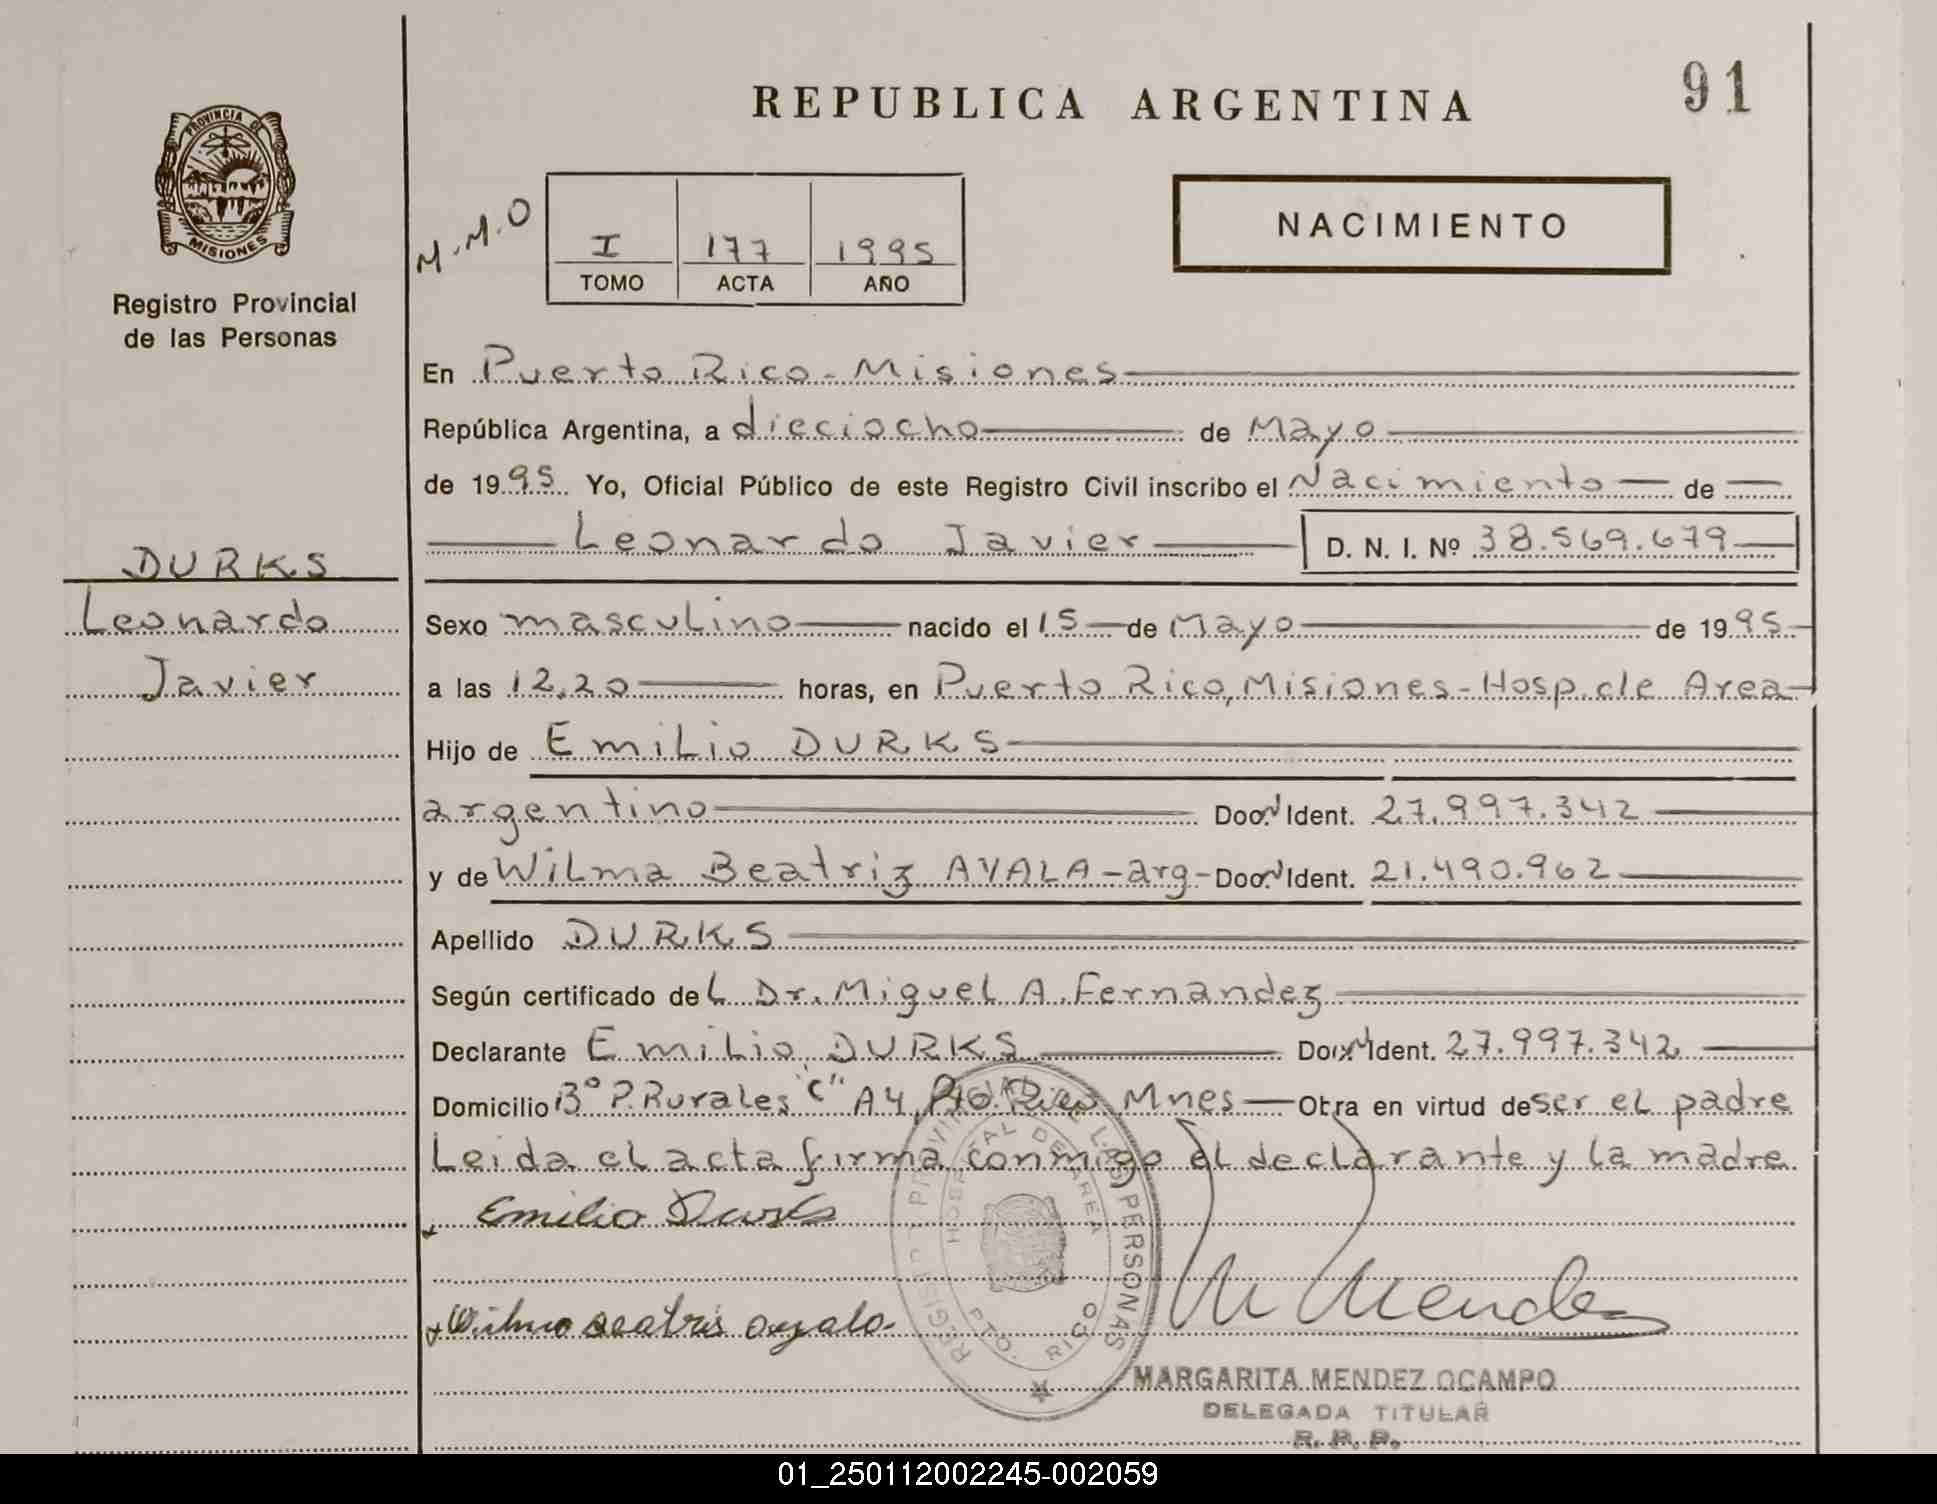 REPUBLICA ARGENTINA
91
PROVINCIA DE
MISIONES
Registro Provincial
de las Personas
M.M.O
I 177 1995
TOMO ACTA AÑO
NACIMIENTO
En Puerto Rico - Misiones
República Argentina, a dieciocho de Mayo
de 1995 Yo, Oficial Público de este Registro Civil inscribo el Nacimiento de
Leonardo Javier D. N. I. Nº 38.569.679
DURKS
Leonardo
Javier
Sexo masculino nacido el 15 de Mayo de 1995
a las 12,20 horas, en Puerto Rico, Misiones - Hosp. de Area
Hijo de Emilio DURKS
argentino Ident. 27.997.342
y de Wilma Beatriz AYALA - arg - Ident. 21.490.962
Apellido DURKS
Según certificado del Dr. Miguel A. Fernandez
Declarante Emilio DURKS Ident. 27.997.342
Domicilio Bº P. Rurales "C" A4, Pto. Rico, Mnes Obra en virtud de ser el padre
Leida el acta firma conmigo el declarante y la madre
Emilio Durks
M Mendez
REGISTRO PROVINCIAL DE LAS PERSONAS
HOSPITAL DE AREA
PTO. RICO
MARGARITA MENDEZ OCAMPO
DELEGADA TITULAR
R. P. P.
01_250112002245-002059